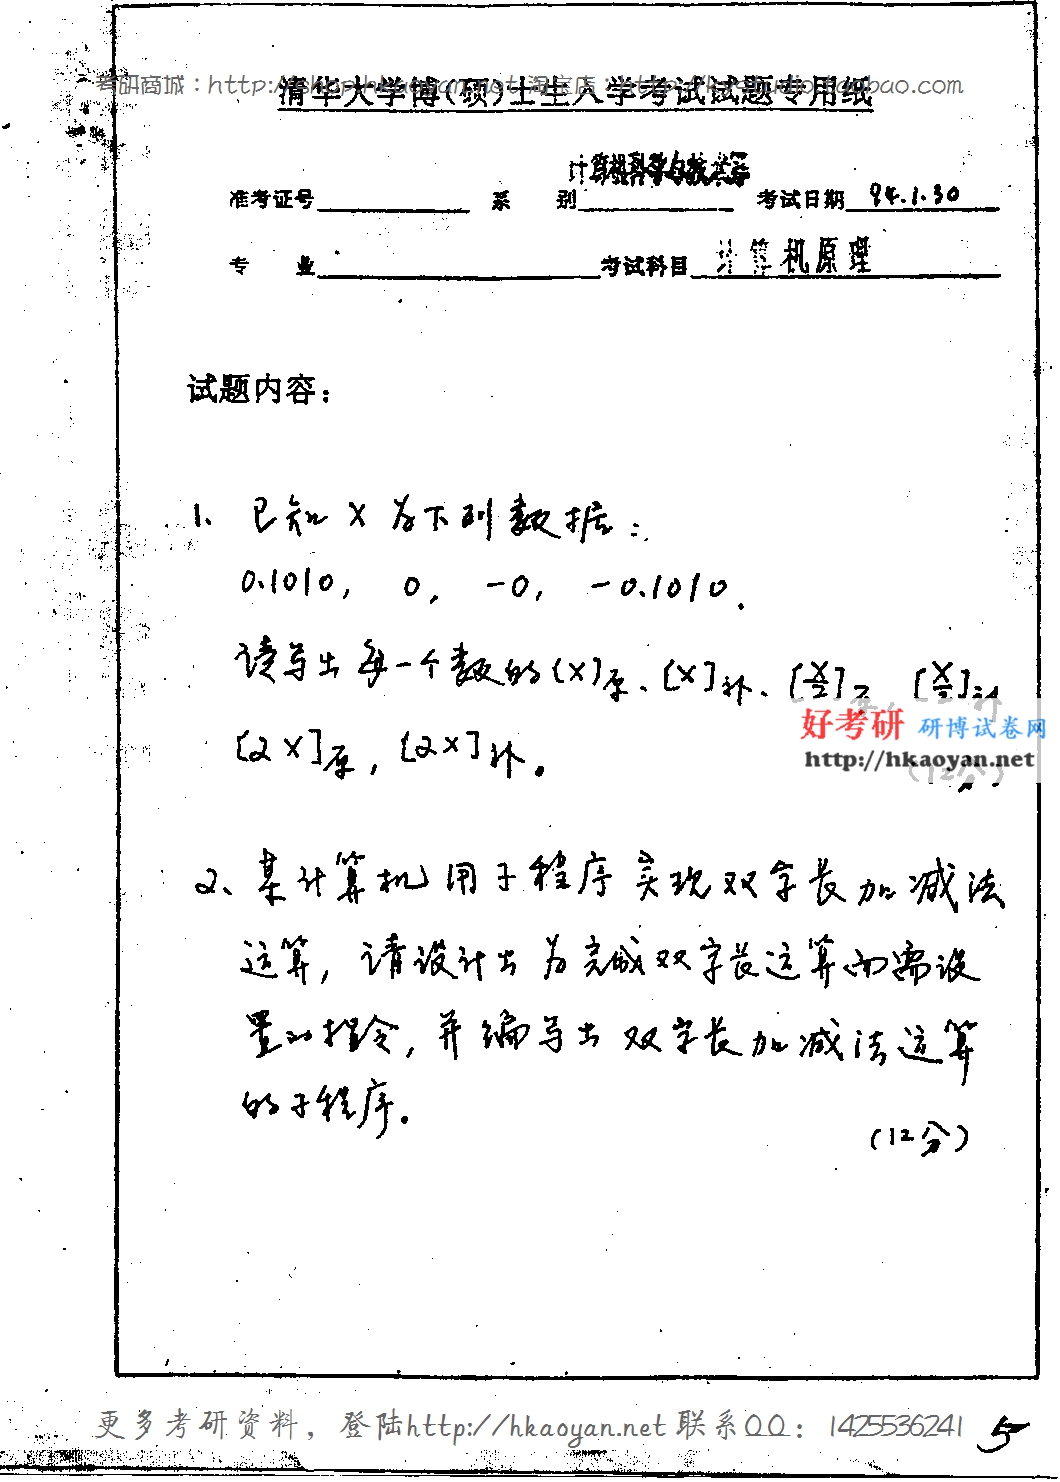 考研商城：http://shop.hkaoyan.net 淘宝店：http://hkaostudio.taobao.com
清华大学博(硕)士生入学考试试题专用纸
准考证号 系 别 计算机科学与技术系 考试日期 94.1.30
专 业 考试科目 计算机原理
试题内容：
1、已知 X 为下列数据：
0.1010， 0， -0， -0.1010.
请写出每一个数的[X]原、[X]补、[X/2]原、[X/2]补
[2X]原，[2X]补。
(12分)
好考研 研博试卷网
http://hkaoyan.net
2、某计算机用子程序实现双字长加减法
运算，请设计出为完成双字长运算而需设
置的指令，并编写出双字长加减法运算
的子程序。
(12分)
更多考研资料，登陆http://hkaoyan.net 联系QQ：1425536241
5